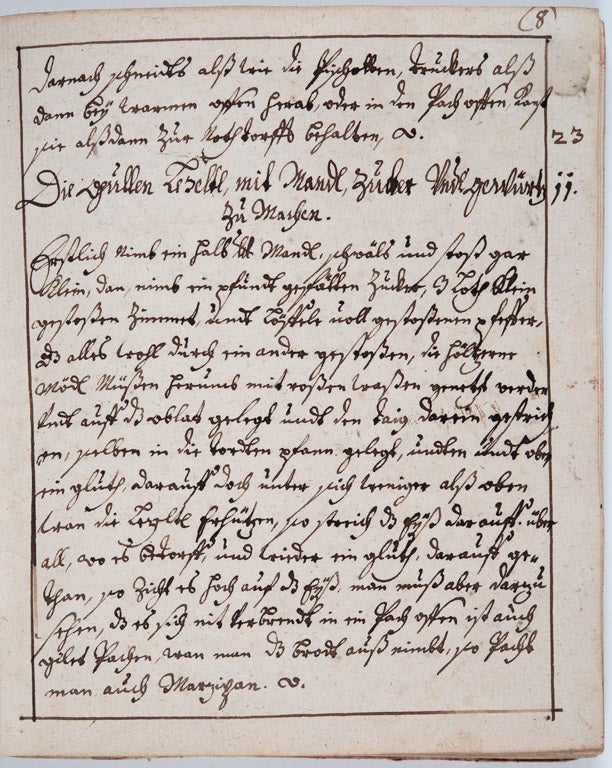 (8
darnach schneidts alß wie die Pischotten, truckers alß
dann bey warmen offen herab, oder in den Pach offen, kanst
sie alßdann zur Nothdorfft behalten, &.
23
Die guetten Lezeltl, mit Mandl, Zucker Undt gewürtz
11.
Zu Machen.
Erstlich Nimb ein halb Mandl, schwöls und stoß gar
klein, dan nimb ein pfundt gefäthen Zucker, 3 Loth klein
gestoßen Zimmet, undt Löffele voll gestoßenen pfeffer,
dz alles wohl durch ein ander gestoßen, die höltzerne
Mödl Müßen herumb mit roßen waßer genetzt werden
Undt auff dz oblat gelegt undt den taig darein gestrich
en, selben in die tordten pfann gelegt, undten undt oben
ein gluth, darauff doch unter sich weniger alß oben
wan die Lezeltl Erhützen, so streich dz Eyß darauff über
all, wo es bedorfft, und wieder ein gluth, darauff ge-
than, so Zicht es hoch auf dz Eyß, man muß aber darzu
sehen, dz es sich nit Verbrendt in ein Pach offen ist auch
guets Pachen, wan man dz brodt auß nimbt, so Pacht
man auch Marzipan. &.